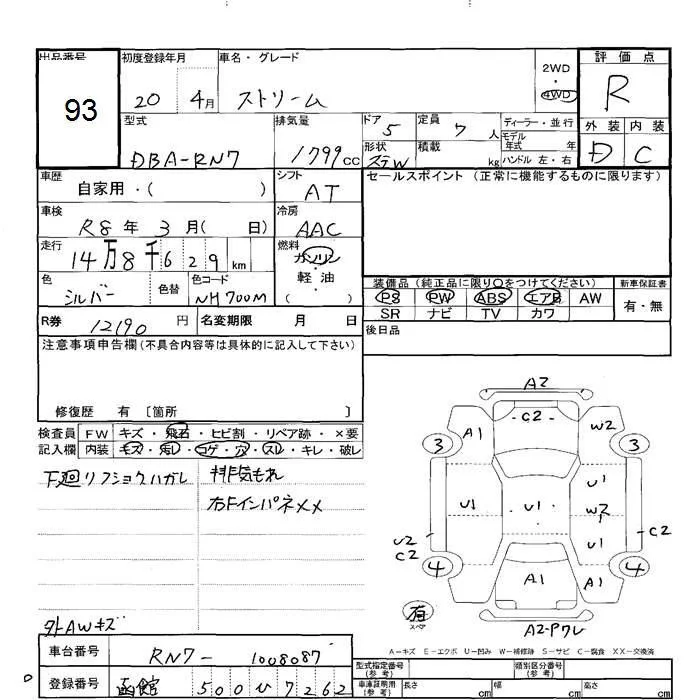 出品番号
93
初度登録年月
20 4月
車名・グレード
ストリーム
2WD
・
4WD
評価点
R
外装 内装
D C
型式
DBA-RN7
排気量
1799cc
ドア 5
定員 7人
形状 ステW
積載 kg
ディーラー・並行
モデル年式 年
ハンドル 左・右
車歴
自家用・( )
シフト
AT
セールスポイント (正常に機能するものに限ります)
車検
R8年3月( 日)
冷房
AAC
走行
14万8千629km
燃料
ガソリン
軽油
( )
色
シルバー
色替
色コード
NH700M
装備品 (純正品に限り○をつけてください)
PS PW ABS エアB AW
SR ナビ TV カワ
新車保証書
有・無
R券 12190円
名変期限 月 日
後日品
注意事項申告欄(不具合内容等は具体的に記入して下さい)
修復歴 有 [箇所 ]
検査員記入欄
FW キズ・飛石・ヒビ割・リペア跡・×要
内装 キズ・汚レ・コゲ・穴・スレ・キレ・破レ
下廻リフショクハガレ
排気もれ
右Fインパネ××
外AWキズ
A2
C2
A1
W2
3
3
U1
U1
U1
W2
U1
U2
C2
C2
4
4
A1
A1
有
スペア
A2-Pワレ
A-キズ E-エクボ U-凹み W-補修跡 S-サビ C-腐食 XX-交換済
車台番号
RN7-1008087
登録番号
函館 500ひ7262
型式指定番号(参考)
類別区分番号(参考)
車庫証明用(参考)
長さ cm
幅 cm
高さ cm